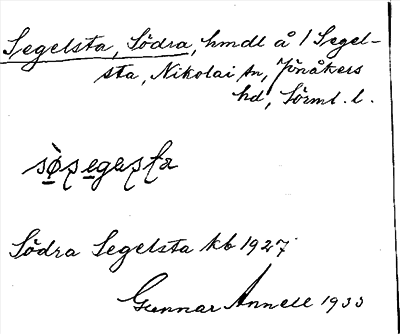 Segelsta, Södra, hmdl å 1 Segel-
sta, Nikolai sn, Jönåkers
hd, Sörml. l.
Södra Segelsta kb 1927
Gunnar Annell 1933